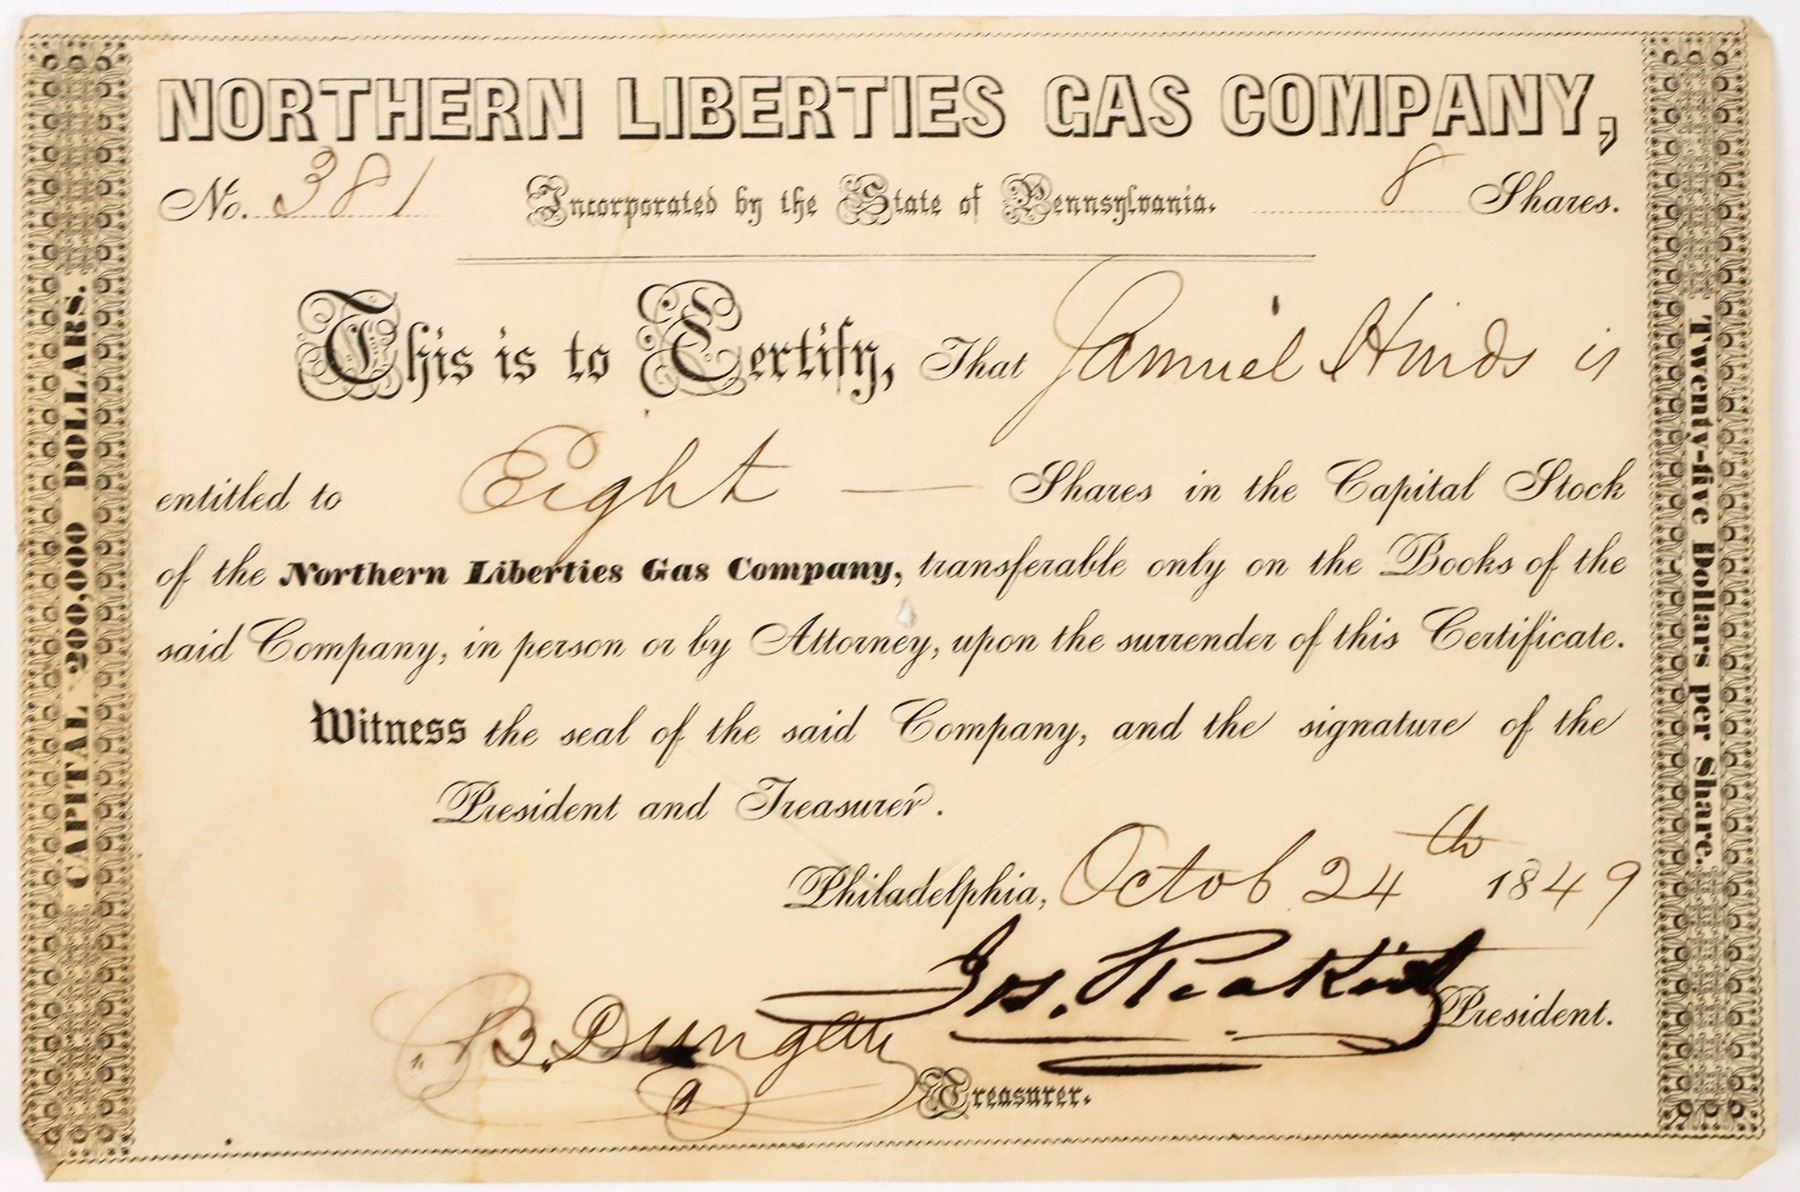 NORTHERN LIBERTIES GAS COMPANY,
No. 381 Incorporated by the State of Pennsylvania. 8 Shares.
This is to Certify, That Samuel Hinds is
entitled to Eight — Shares in the Capital Stock
of the Northern Liberties Gas Company, transferable only on the Books of the
said Company, in person or by Attorney, upon the surrender of this Certificate.
Witness the seal of the said Company, and the signature of the
President and Treasurer.
Philadelphia, Octob 24th 1849
Jos. President.
B. Dungan
Treasurer.
CAPITAL 200,000 DOLLARS.
Twenty-five Dollars per Share.